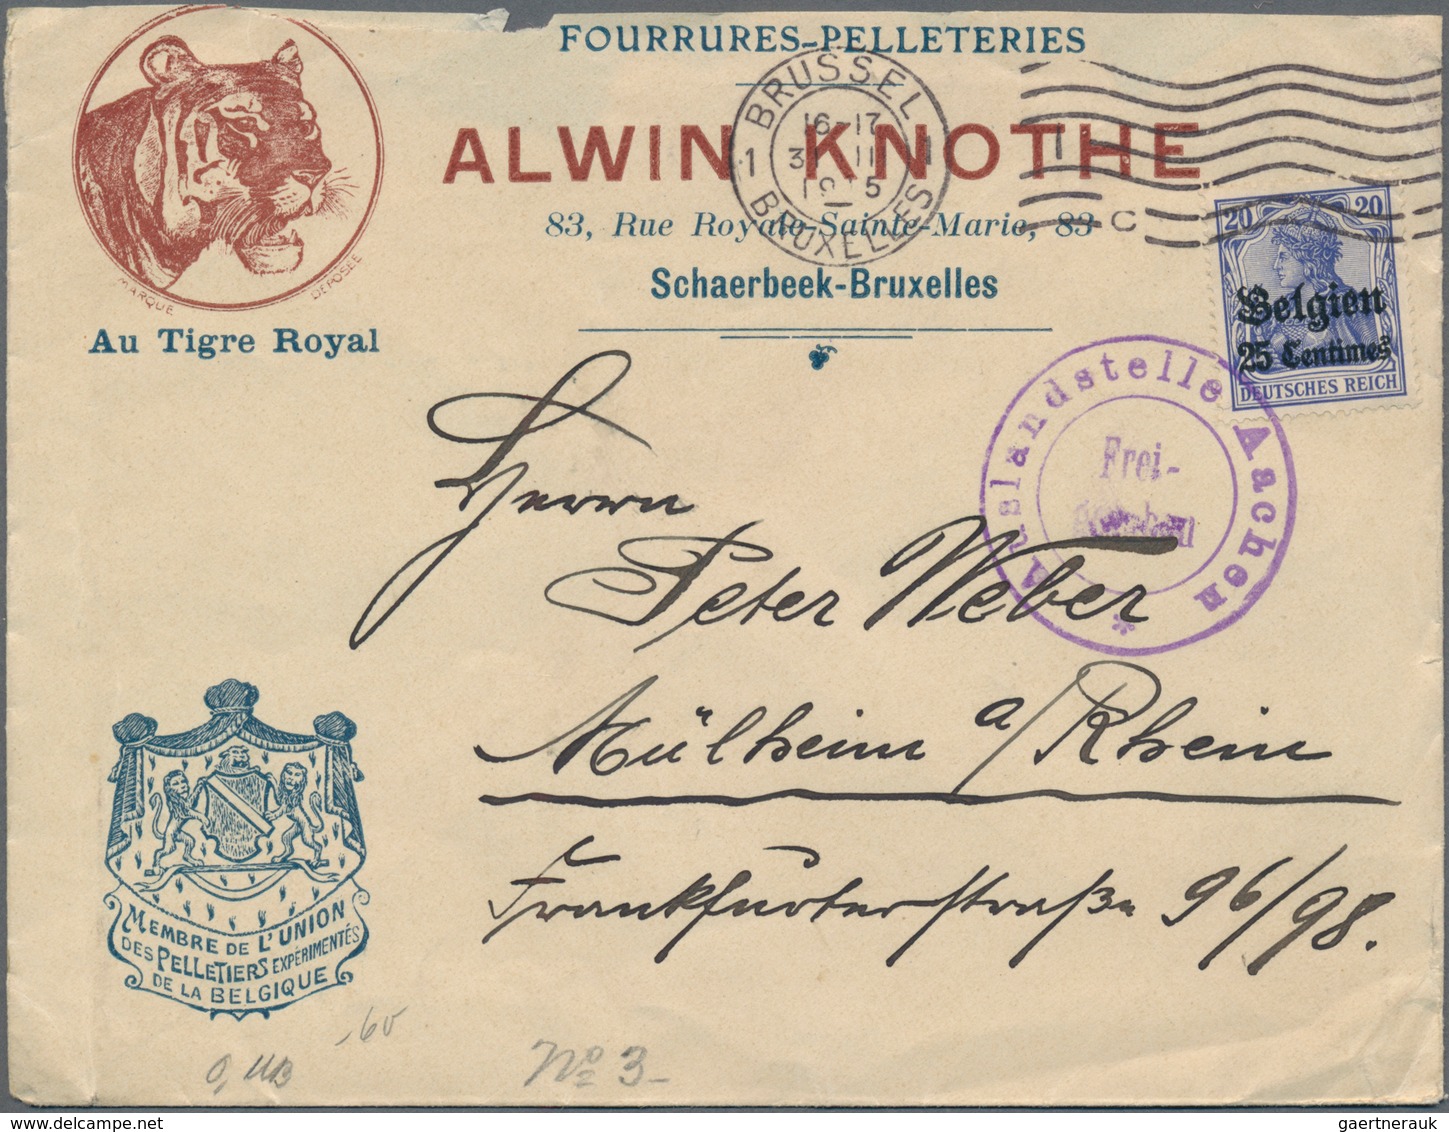 FOURRURES-PELLETERIES
ALWIN KNOTHE
83, Rue Royale-Sainte-Marie, 83
Schaerbeek-Bruxelles
MARQUE DEPOSÉE
Au Tigre Royal
BRUSSEL
16-17
1 1
1915
BRUXELLES
C
20 20
Belgien
25 Centimes
DEUTSCHES REICH
Auslandstelle Aachen
Frei-
*
Herrn
Peter Weber
Mülheim a/Rhein
Frankfurterstraße 96/98.
MEMBRE DE L'UNION
DES PELLETIERS EXPÉRIMENTÉS
DE LA BELGIQUE
No 3-
gaertnerauk